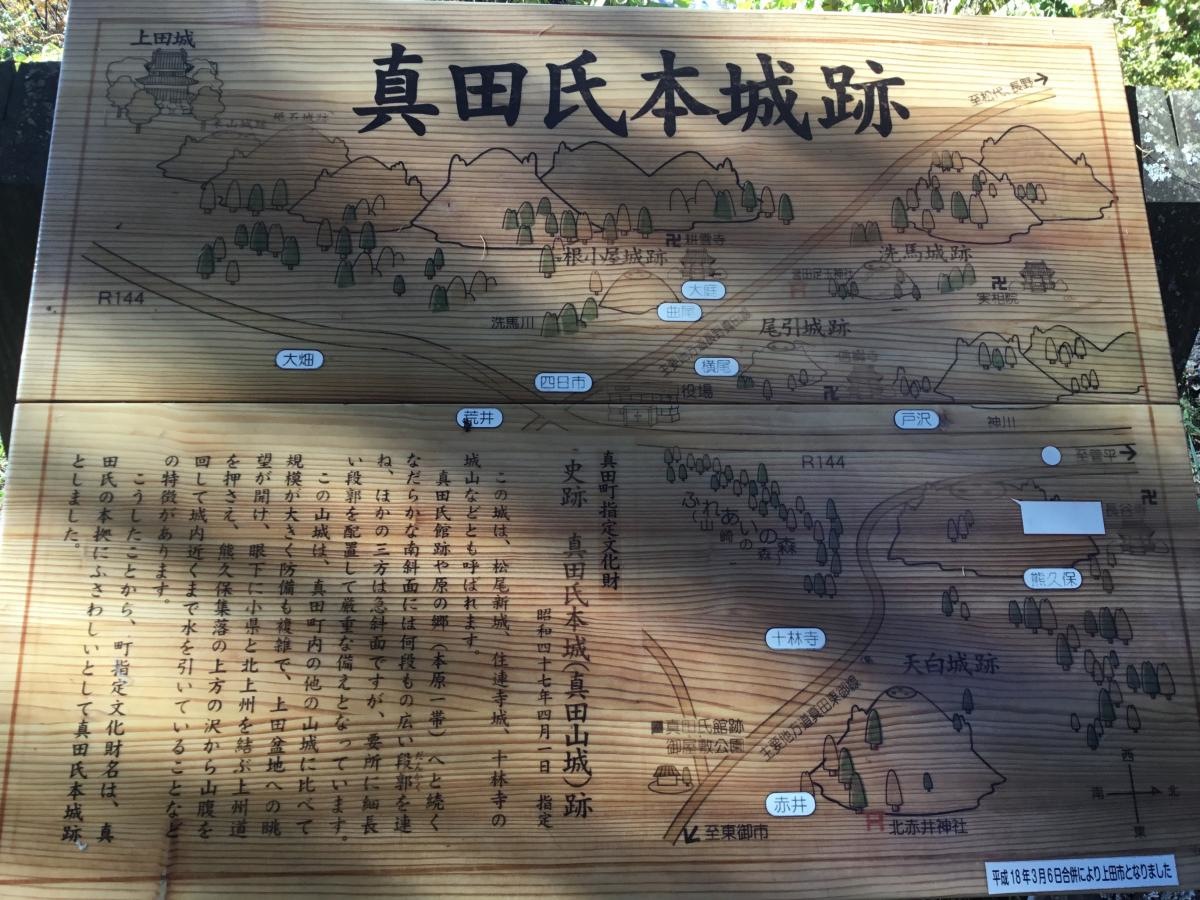 真田氏本城跡
上田城
至松代、長野
根小屋城跡
耕雲寺
洗馬城跡
大庭
実相院
R144
曲尾
洗馬川
尾引城跡
大畑
横尾
四日市
役場
荒井
戸沢
神川
R144
至菅平
ふれあいの森
熊久保
十林寺
天白城跡
真田氏館跡
御屋敷公園
主要地方道真田東御線
赤井
北赤井神社
至東御市
西
南
北
東
真田町指定文化財
史跡 真田氏本城(真田山城)跡
昭和四十七年四月一日 指定
この城は、松尾新城、住連寺城、十林寺の
城山などとも呼ばれます。
真田氏館跡や原の郷(本原一帯)へと続く
なだらかな南斜面には何段もの広い段郭を連
ね、ほかの三方は急斜面ですが、要所に細長
い段郭を配置して厳重な備えとなっています。
この山城は、真田町内の他の山城に比べて
規模が大きく防備も複雑で、上田盆地への眺
望が開け、眼下に小県と北上州を結ぶ上州道
を押さえ、熊久保集落の上方の沢から山腹を
回して城内近くまで水を引いていることなど
の特徴があります。
こうしたことから、町指定文化財名は、真
田氏の本拠にふさわしいとして真田氏本城跡
としました。
平成18年3月6日合併により上田市となりました